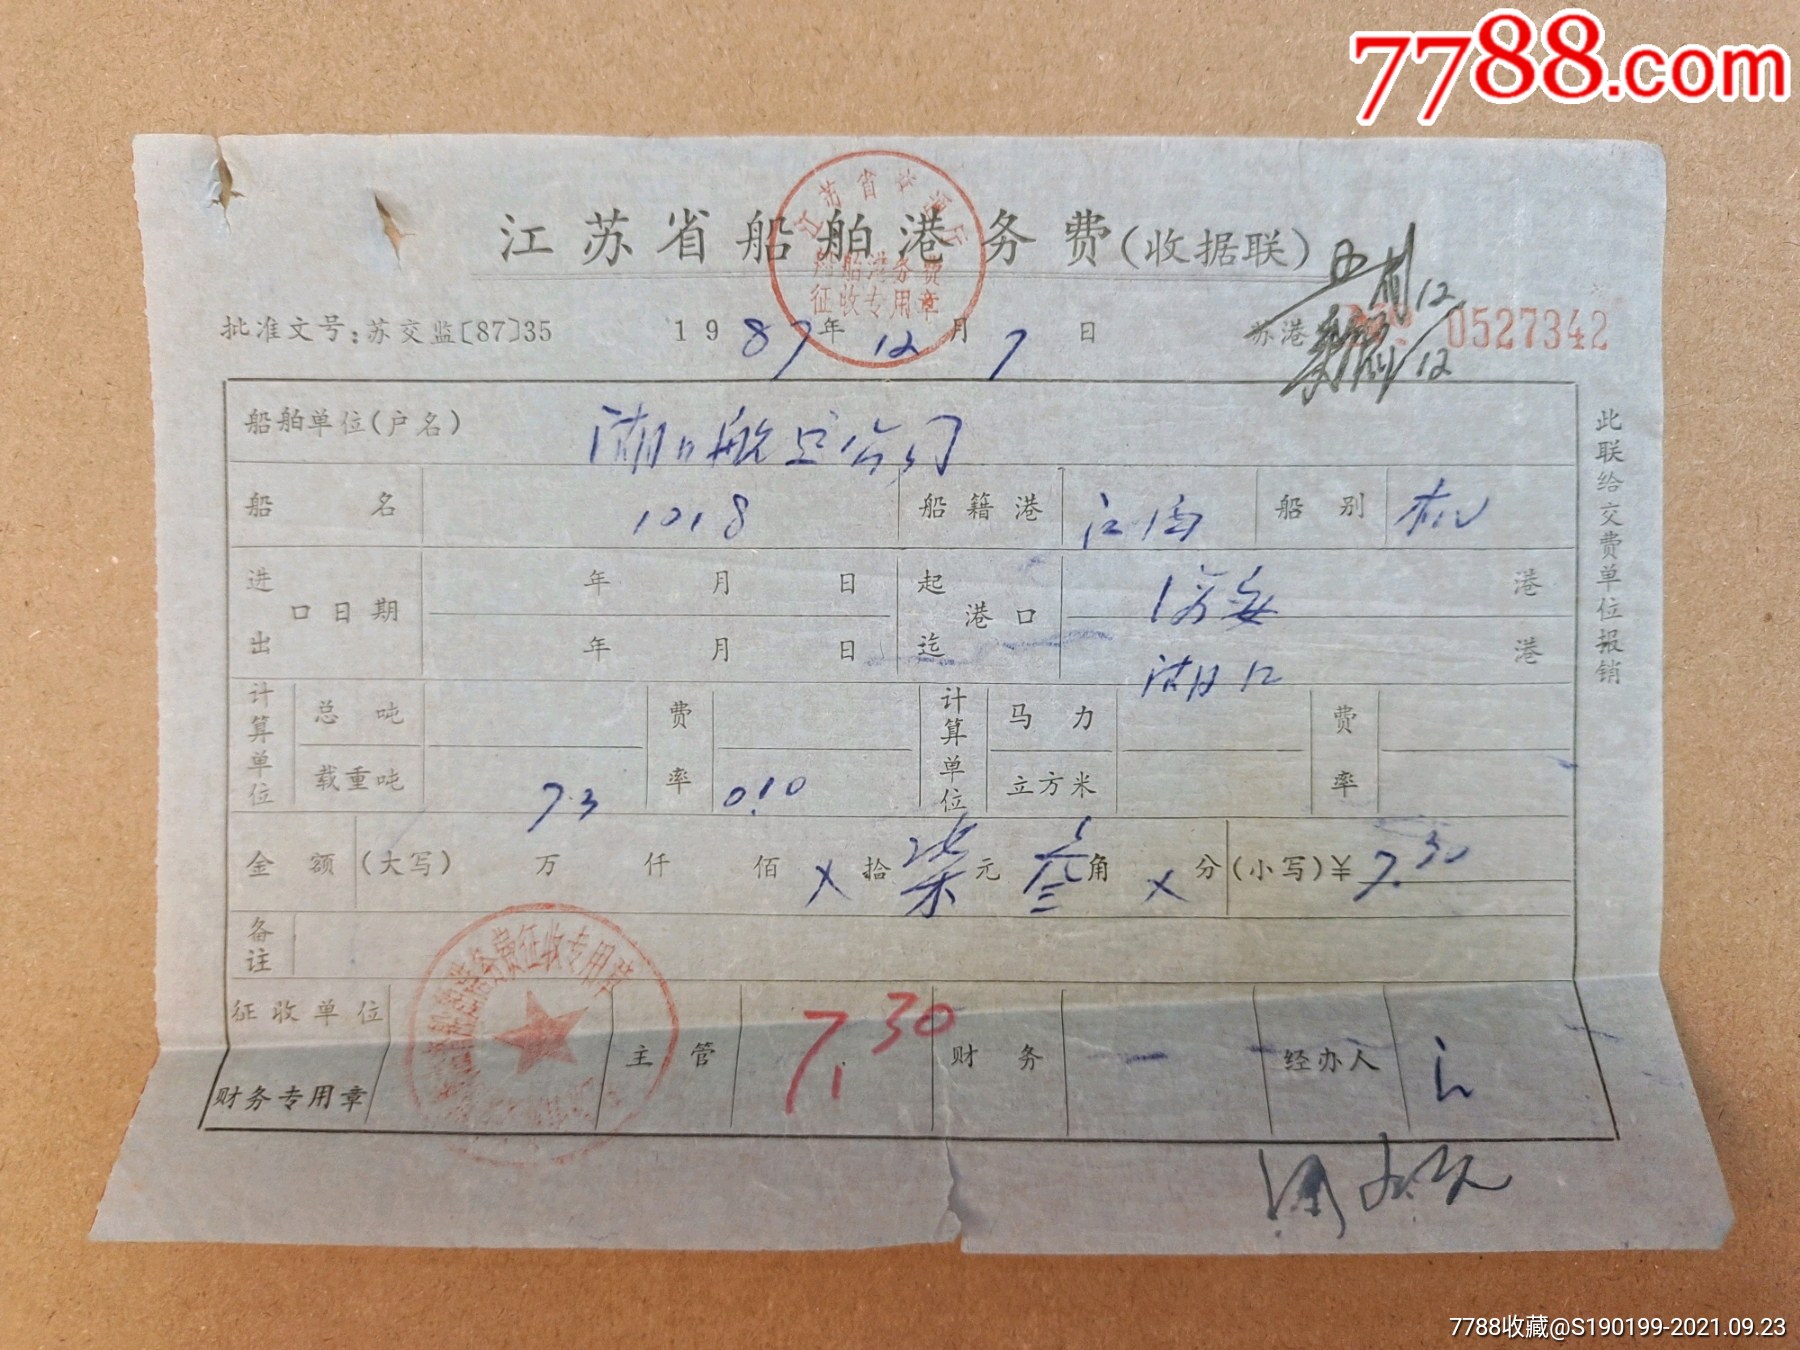 7788.com
江苏省船舶港务费(收据联)
批准文号:苏交监[87]35 1987年12月7日 苏港 0527342
船舶港务费
征收专用章
船舶单位(户名) 湖口航运公司
船名 1018 船籍港 江西 船别 机
进口日期 年 月 日 起港口 港
出 年 月 日 迄 湖口 港
计算单位 总吨 费率 计算单位 马力 费率
载重吨 73 0.10 立方米
金额(大写) 万 仟 佰 X 拾 柒 元 叁 角 X 分 (小写)¥ 7.30
备注
征收单位财务专用章 主管 7.30 财务 经办人
港务费征收专用章
此联给交费单位报销
7788收藏@S190199-2021.09.23